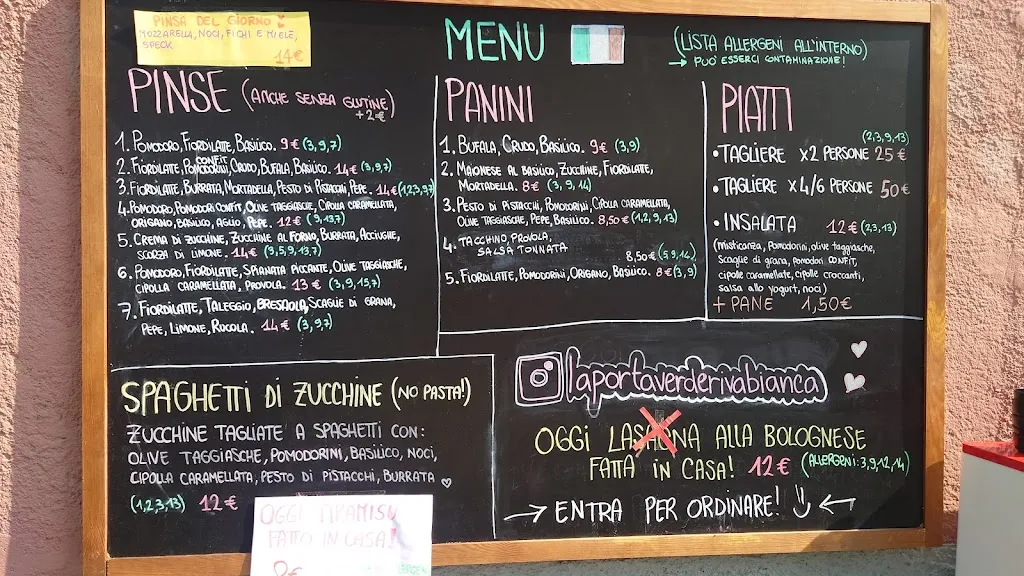 PINSA DEL GIORNO
MOZZARELLA, NOCI, FICHI E MIELE,
SPECK
14€
MENU
(LISTA ALLERGENI ALL'INTERNO)
→ PUO' ESSERCI CONTAMINAZIONE!
PINSE (ANCHE SENZA GLUTINE)
+2€
1. POMODORO, FIORDILATTE, BASILICO. 9€ (3,9,7)
2. FIORDILATTE, POMODORINI CONFIT, CRUDO, BUFALA, BASILICO. 14€ (3,9,7)
3. FIORDILATTE, BURRATA, MORTADELLA, PESTO DI PISTACCHI, PEPE. 14€ (1,2,3,9,7)
4. POMODORO, POMODORI CONFIT, OLIVE TAGGIASCHE, CIPOLLA CARAMELLATA,
ORIGANO, BASILICO, AGLIO, PEPE 12€ (9,13,7)
5. CREMA DI ZUCCHINE, ZUCCHINE AL FORNO, BURRATA, ACCIUGHE,
SCORZA DI LIMONE. 14€ (3,5,9,13,7)
6. POMODORO, FIORDILATTE, SPIANATA PICCANTE, OLIVE TAGGIASCHE,
CIPOLLA CARAMELLATA, PROVOLA. 13€ (3,9,13,7)
7. FIORDILATTE, TALEGGIO, BRESAOLA, SCAGLIE DI GRANA,
PEPE, LIMONE, RUCOLA. 14€ (3,9,7)
PANINI
1. BUFALA, CRUDO, BASILICO. 9€ (3,9)
2. MAIONESE AL BASILICO, ZUCCHINE, FIORDILATTE,
MORTADELLA. 8€ (3,9,14)
3. PESTO DI PISTACCHI, POMODORINI, CIPOLLA CARAMELLATA,
OLIVE TAGGIASCHE, PEPE, BASILICO. 8,50€ (1,2,9,13)
4. TACCHINO, PROVOLA,
SALSA TONNATA
8,50€ (5,9,14)
5. FIORDILATTE, POMODORINI, ORIGANO, BASILICO. 8€ (3,9)
PIATTI
(2,3,9,13)
• TAGLIERE x2 PERSONE 25€
• TAGLIERE x4/6 PERSONE 50€
• INSALATA 12€ (2,3,13)
(misticanza, Pomodorini, olive taggiasche,
Scaglie di grana, pomodori CONFIT,
cipolle caramellate, cipolle croccanti,
salsa allo yogurt, noci)
+ PANE 1,50€
SPAGHETTI DI ZUCCHINE (NO PASTA!)
ZUCCHINE TAGLIATE A SPAGHETTI CON:
OLIVE TAGGIASCHE, POMODORINI, BASILICO, NOCI,
CIPOLLA CARAMELLATA, PESTO DI PISTACCHI, BURRATA ♡
(1,2,3,13) 12€
laportaverderivabianca
OGGI LASAGNA ALLA BOLOGNESE
FATTA IN CASA! 12€ (ALLERGENI: 3,9,12,14)
→ ENTRA PER ORDINARE! ←
OGGI TIRAMISU
FATTO IN CASA!